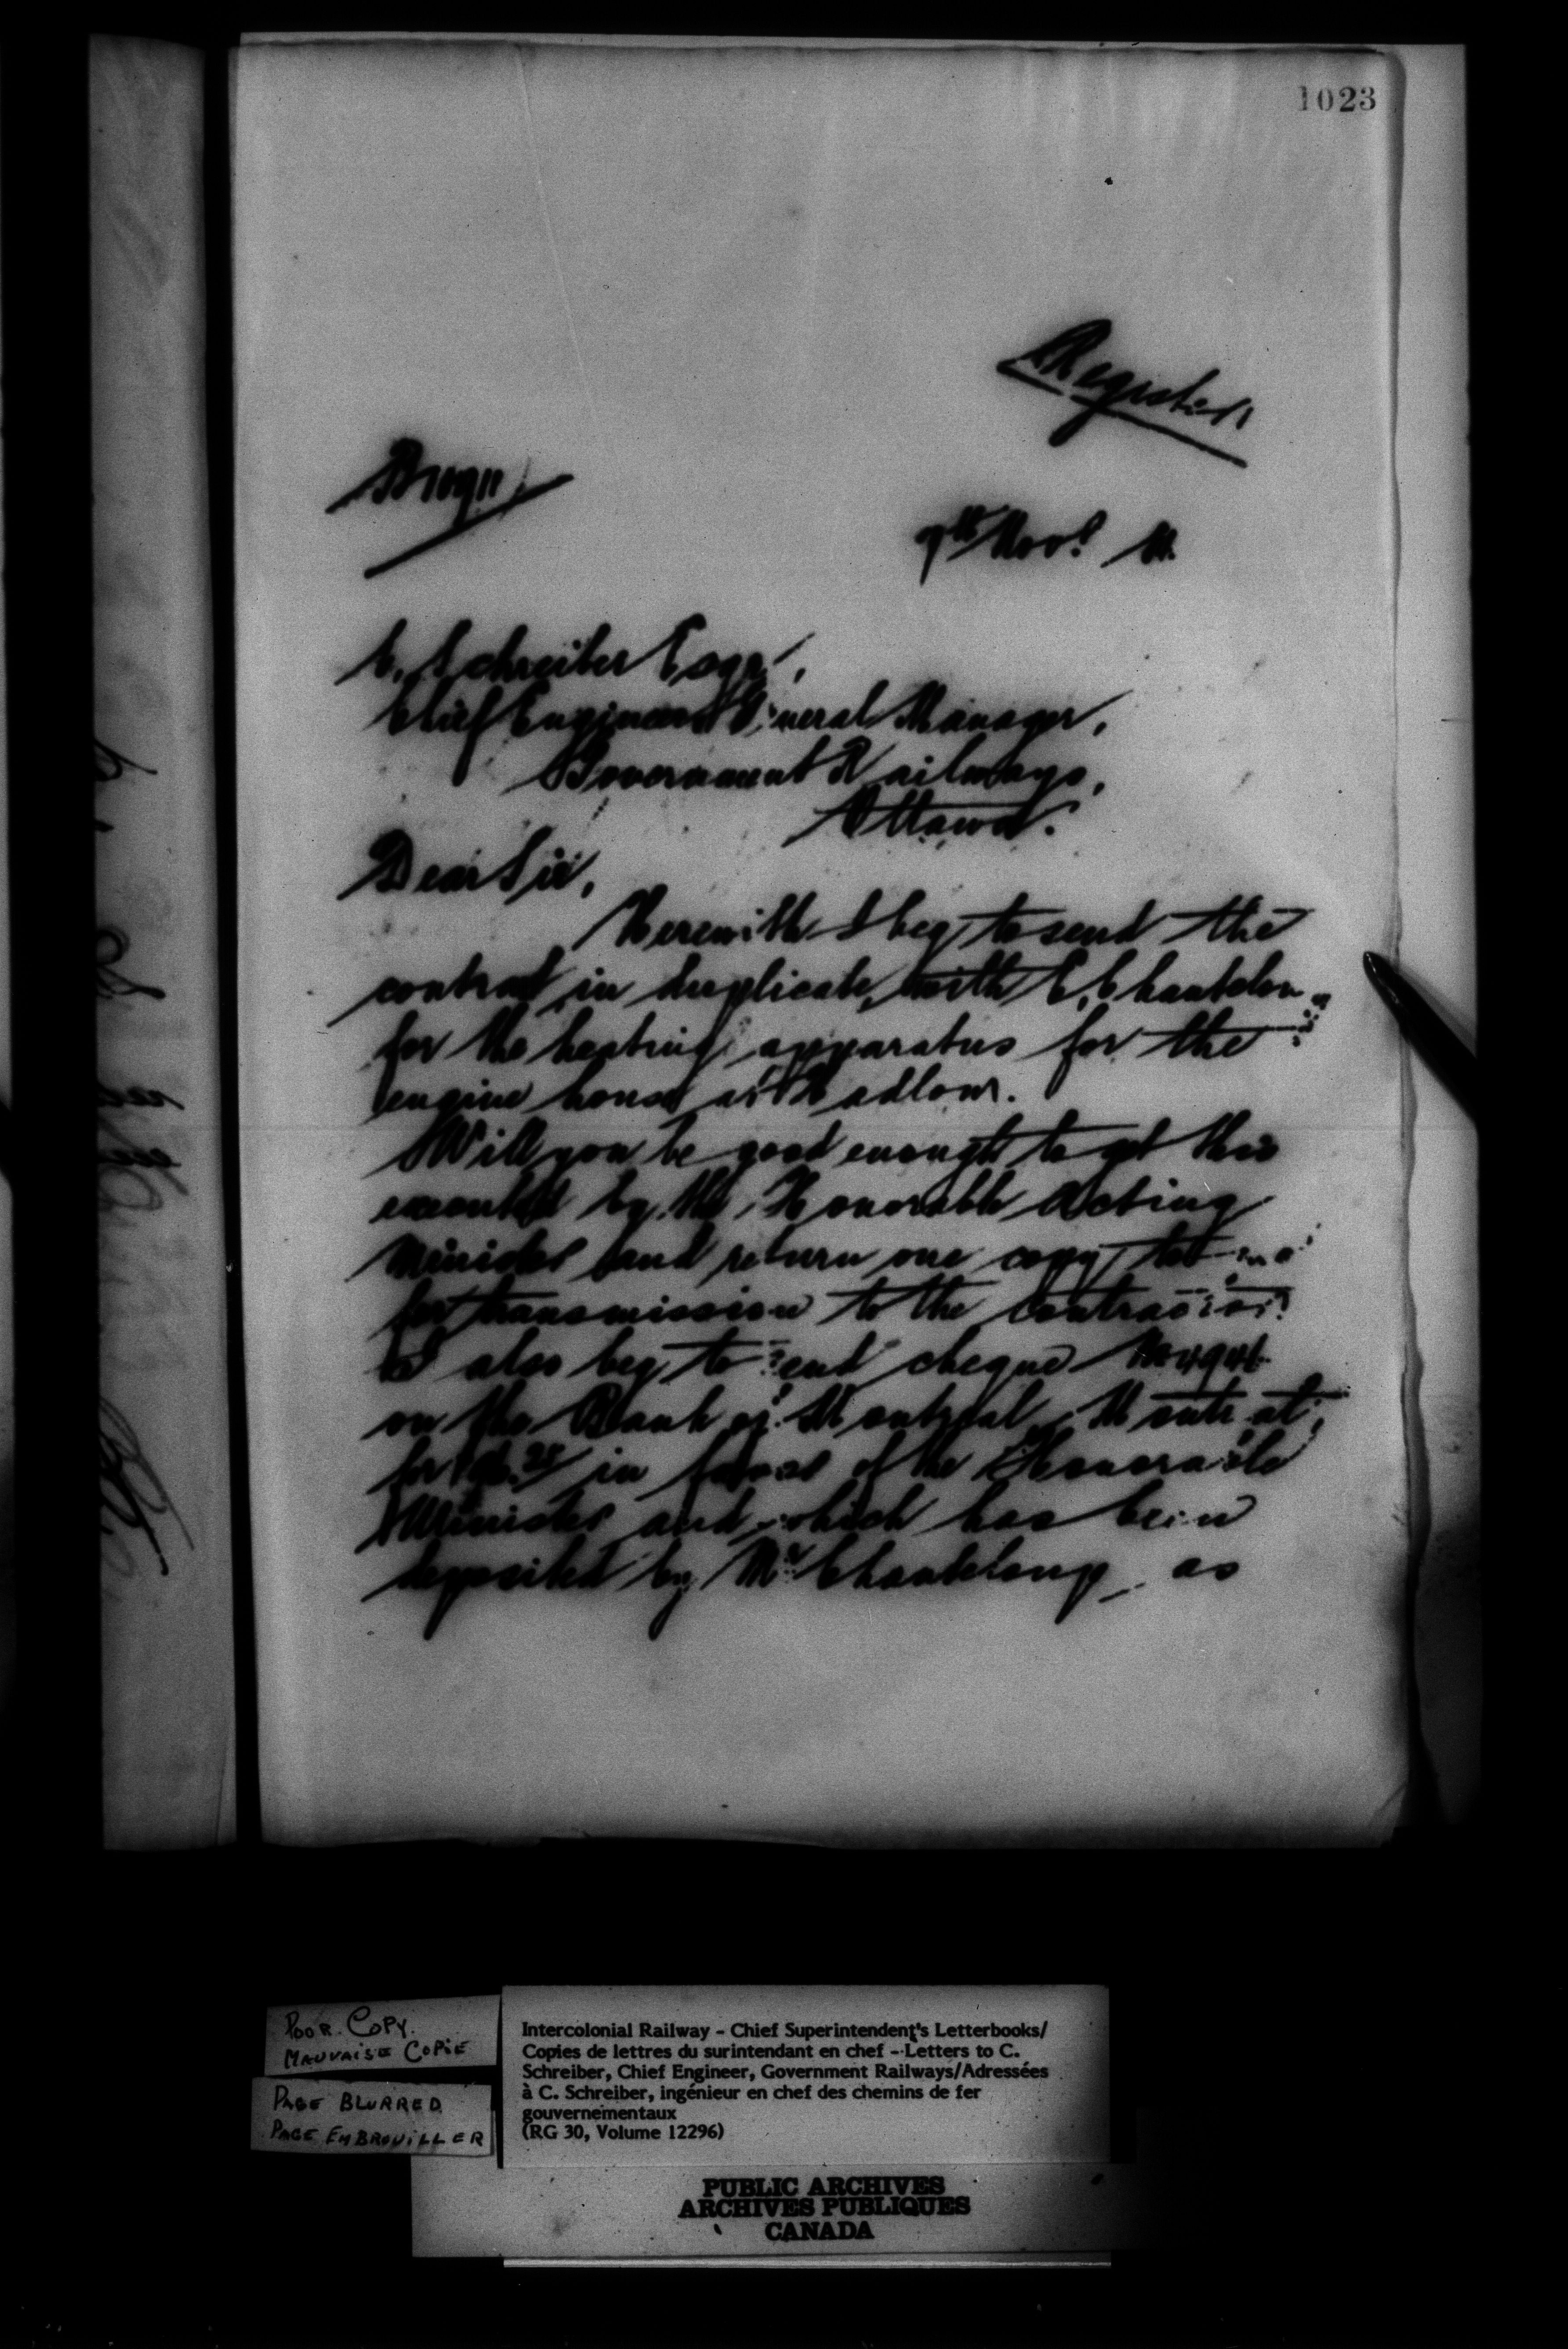 1023
Register
7th Nov.
C. Schreiber Esqr.,
Chief Engineer & General Manager,
Government Railways,
Ottawa.
Dear Sir,
Herewith I beg to send the
contract, in duplicate, with E. Chanteloup
for the heating apparatus for the
engine house at Hadlow.
Will you be good enough to get this
executed by the Honorable Acting
Minister and return one copy to me
for transmission to the contractor.
I also beg to send cheque
on the Bank of Montreal, Montreal,
for in favor of the Honorable
Minister and which has been
deposited by Mr Chanteloup as
POOR COPY.
MAUVAISE COPIE
PAGE BLURRED
PAGE EMBROUILLER
Intercolonial Railway - Chief Superintendent's Letterbooks/
Copies de lettres du surintendant en chef - Letters to C.
Schreiber, Chief Engineer, Government Railways/Adressées
à C. Schreiber, ingénieur en chef des chemins de fer
gouvernementaux
(RG 30, Volume 12296)
PUBLIC ARCHIVES
ARCHIVES PUBLIQUES
CANADA